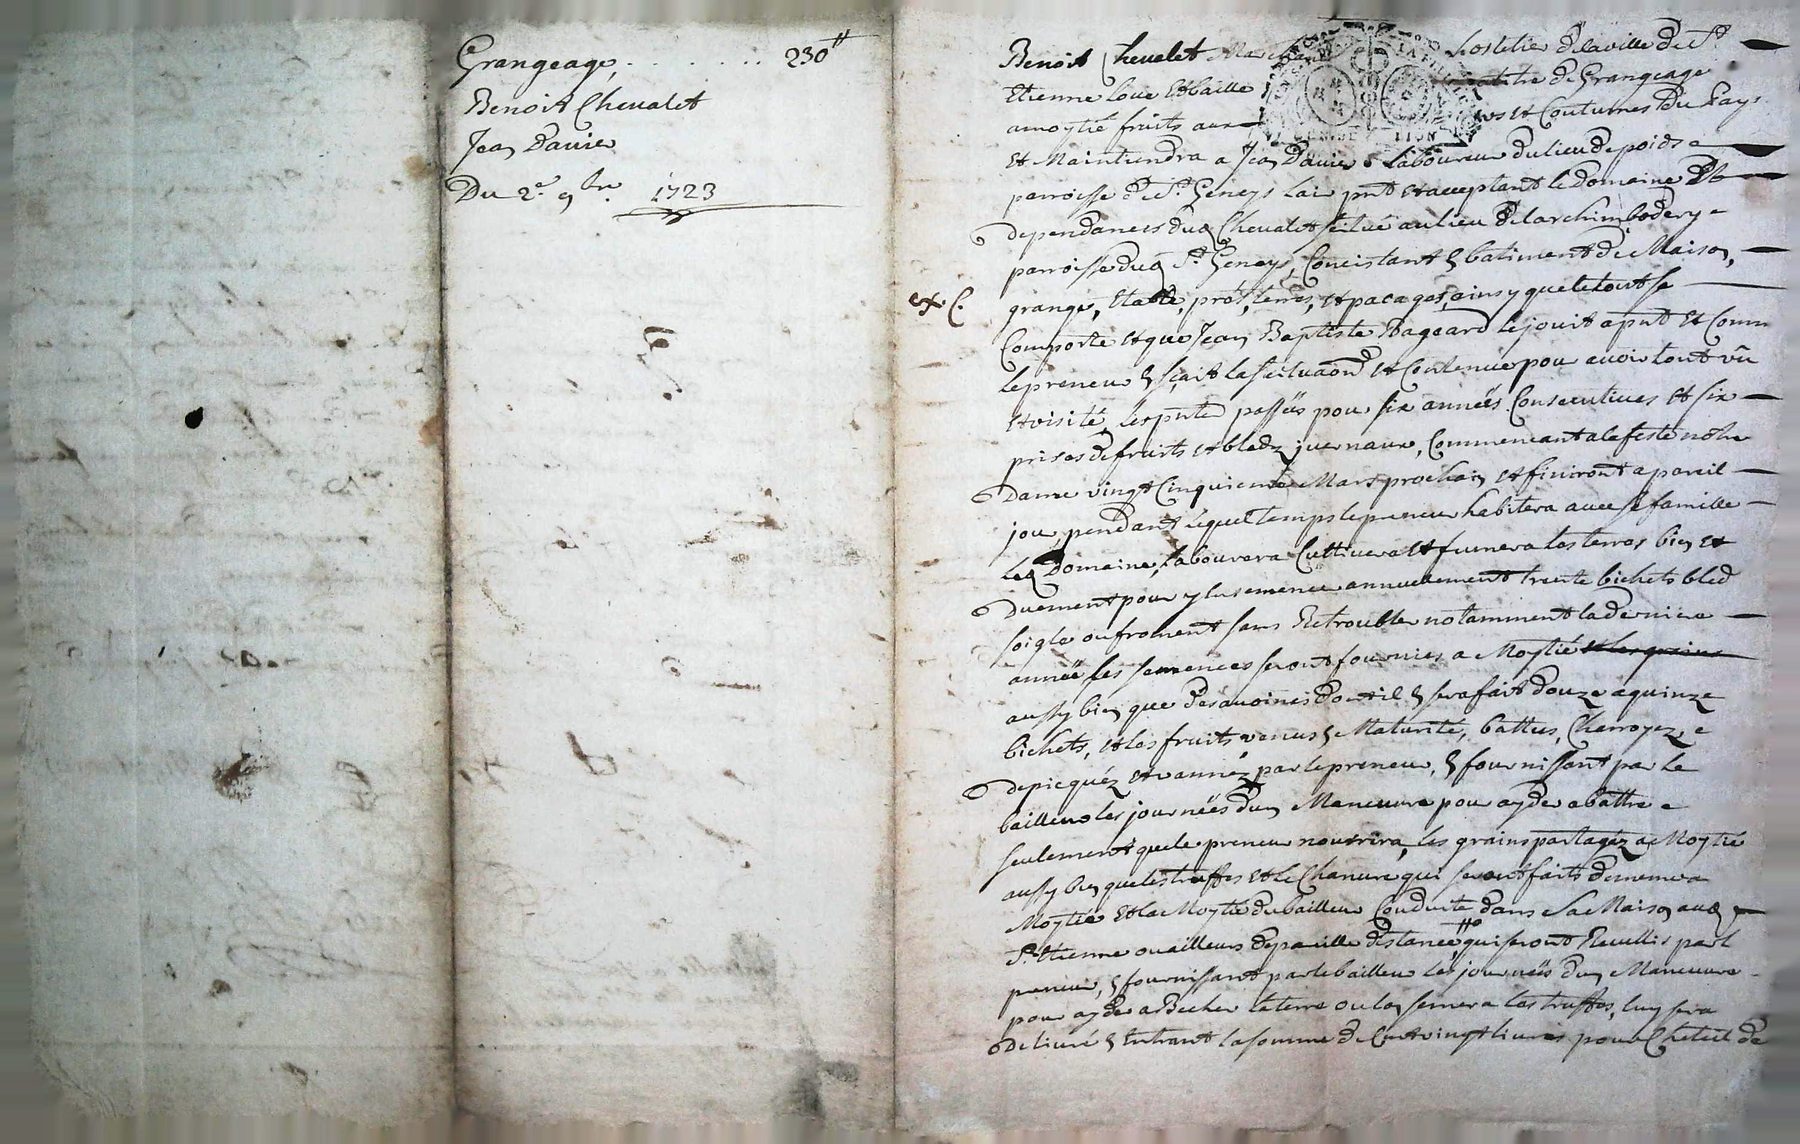 Grangeage, . . . . . . . 230ᵗᵗ
Benoist Chevalet
Jean Danier
Du 2.e 9bre. 1723
ex. C.
Benoist Chevalet Marchand hostelier de la ville de St
Etienne loue et baille a titre de Grangeage
a moytié fruits aux us et Coutumes du Pays
et Maintiendra a Jean Danier Laboureur du lieu de poids
parroisse de St Geneys Lair pnt et acceptant le Domaine et
dependances dud Chevalet scitué au lieu de larchimbodery
parroisse dud St Geneys, Concistant en batiment de Maison,
grange, Etable, prés, terres, et pacages, ainsy que le tout se
Comporte et que Jean Baptiste Bageard le jouit a pnt et Comme
le preneur en sçait la scituaõn et Contenue pour avoir tout vû
et visité, les pntes passées pour six années Consecutives et six
prises de fruits et bledz yvernaux, Commencant a la feste notre
Dame vingt Cinquieme Mars prochain et finiront a pareil
jour, pendant lequel temps le preneur habitera avec sa famille
Led Domaine, Labourera Cultivera et fumera les terres bien et
Duement pour y ensemencer annuellement trente bichets bled
soigle ou froment sans Retroubler notamment la derniere
année les semences seront fournies a Moytié et les grains
aussy bien que des avoines dont il en sera fait douze a quinze
bichets, et les fruits venus en Maturité, battus, Charroyez,
depicquéz et vannéz par le preneur, en fournissant par le
bailleur les journées dun Maneuvre pour ayder a battre
seulement que le preneur nourrira, les grains partagéz a Moytié
aussy bien que les truffes et le Chanvre qui seront faits de mesme a
Moytié et la Moytié du bailleur Conduite dans sa Maison aud
St Etienne ou ailleurs de pareille distance, qui seront Recullis par le
preneur, en fournissant par le bailleur les journées dun Maneuvre
pour ayder a Becher la terre ou lon semera les truffes, luy sera
Delivré en Entrant la somme de Cent vingt livres pour Cheteil de